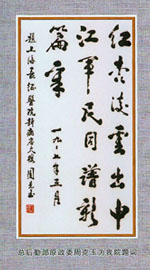 红杏凌云出申
江军民同谱新
篇章
一九九七年三月
题上海长征医院 周克玉
总后勤部原政委周克玉为我院题词